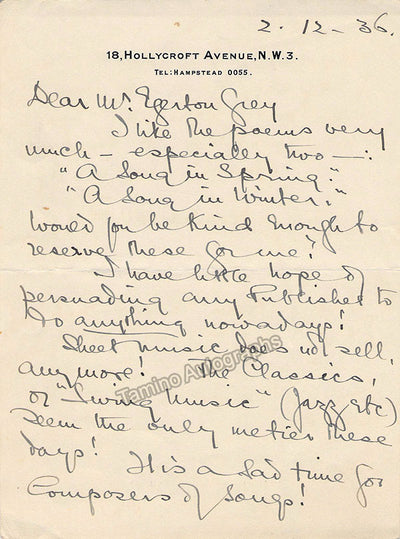 2. 12 - 36.
18, HOLLYCROFT AVENUE, N.W. 3.
TEL: HAMPSTEAD 0055.
Dear Mr. Egerton Grey
I like the poems very
much - especially two -:
"A Song in Spring."
"A Song in Winter."
Would you be kind enough to
reserve these for me?
I have little hope of
persuading any Publisher to
do anything nowadays!
Sheet music does not sell,
any more! The Classics,
or "Swing Music" (Jazz etc)
seem the only metier these
days! It is a sad time for
Composers of songs!
Tamino Autographs